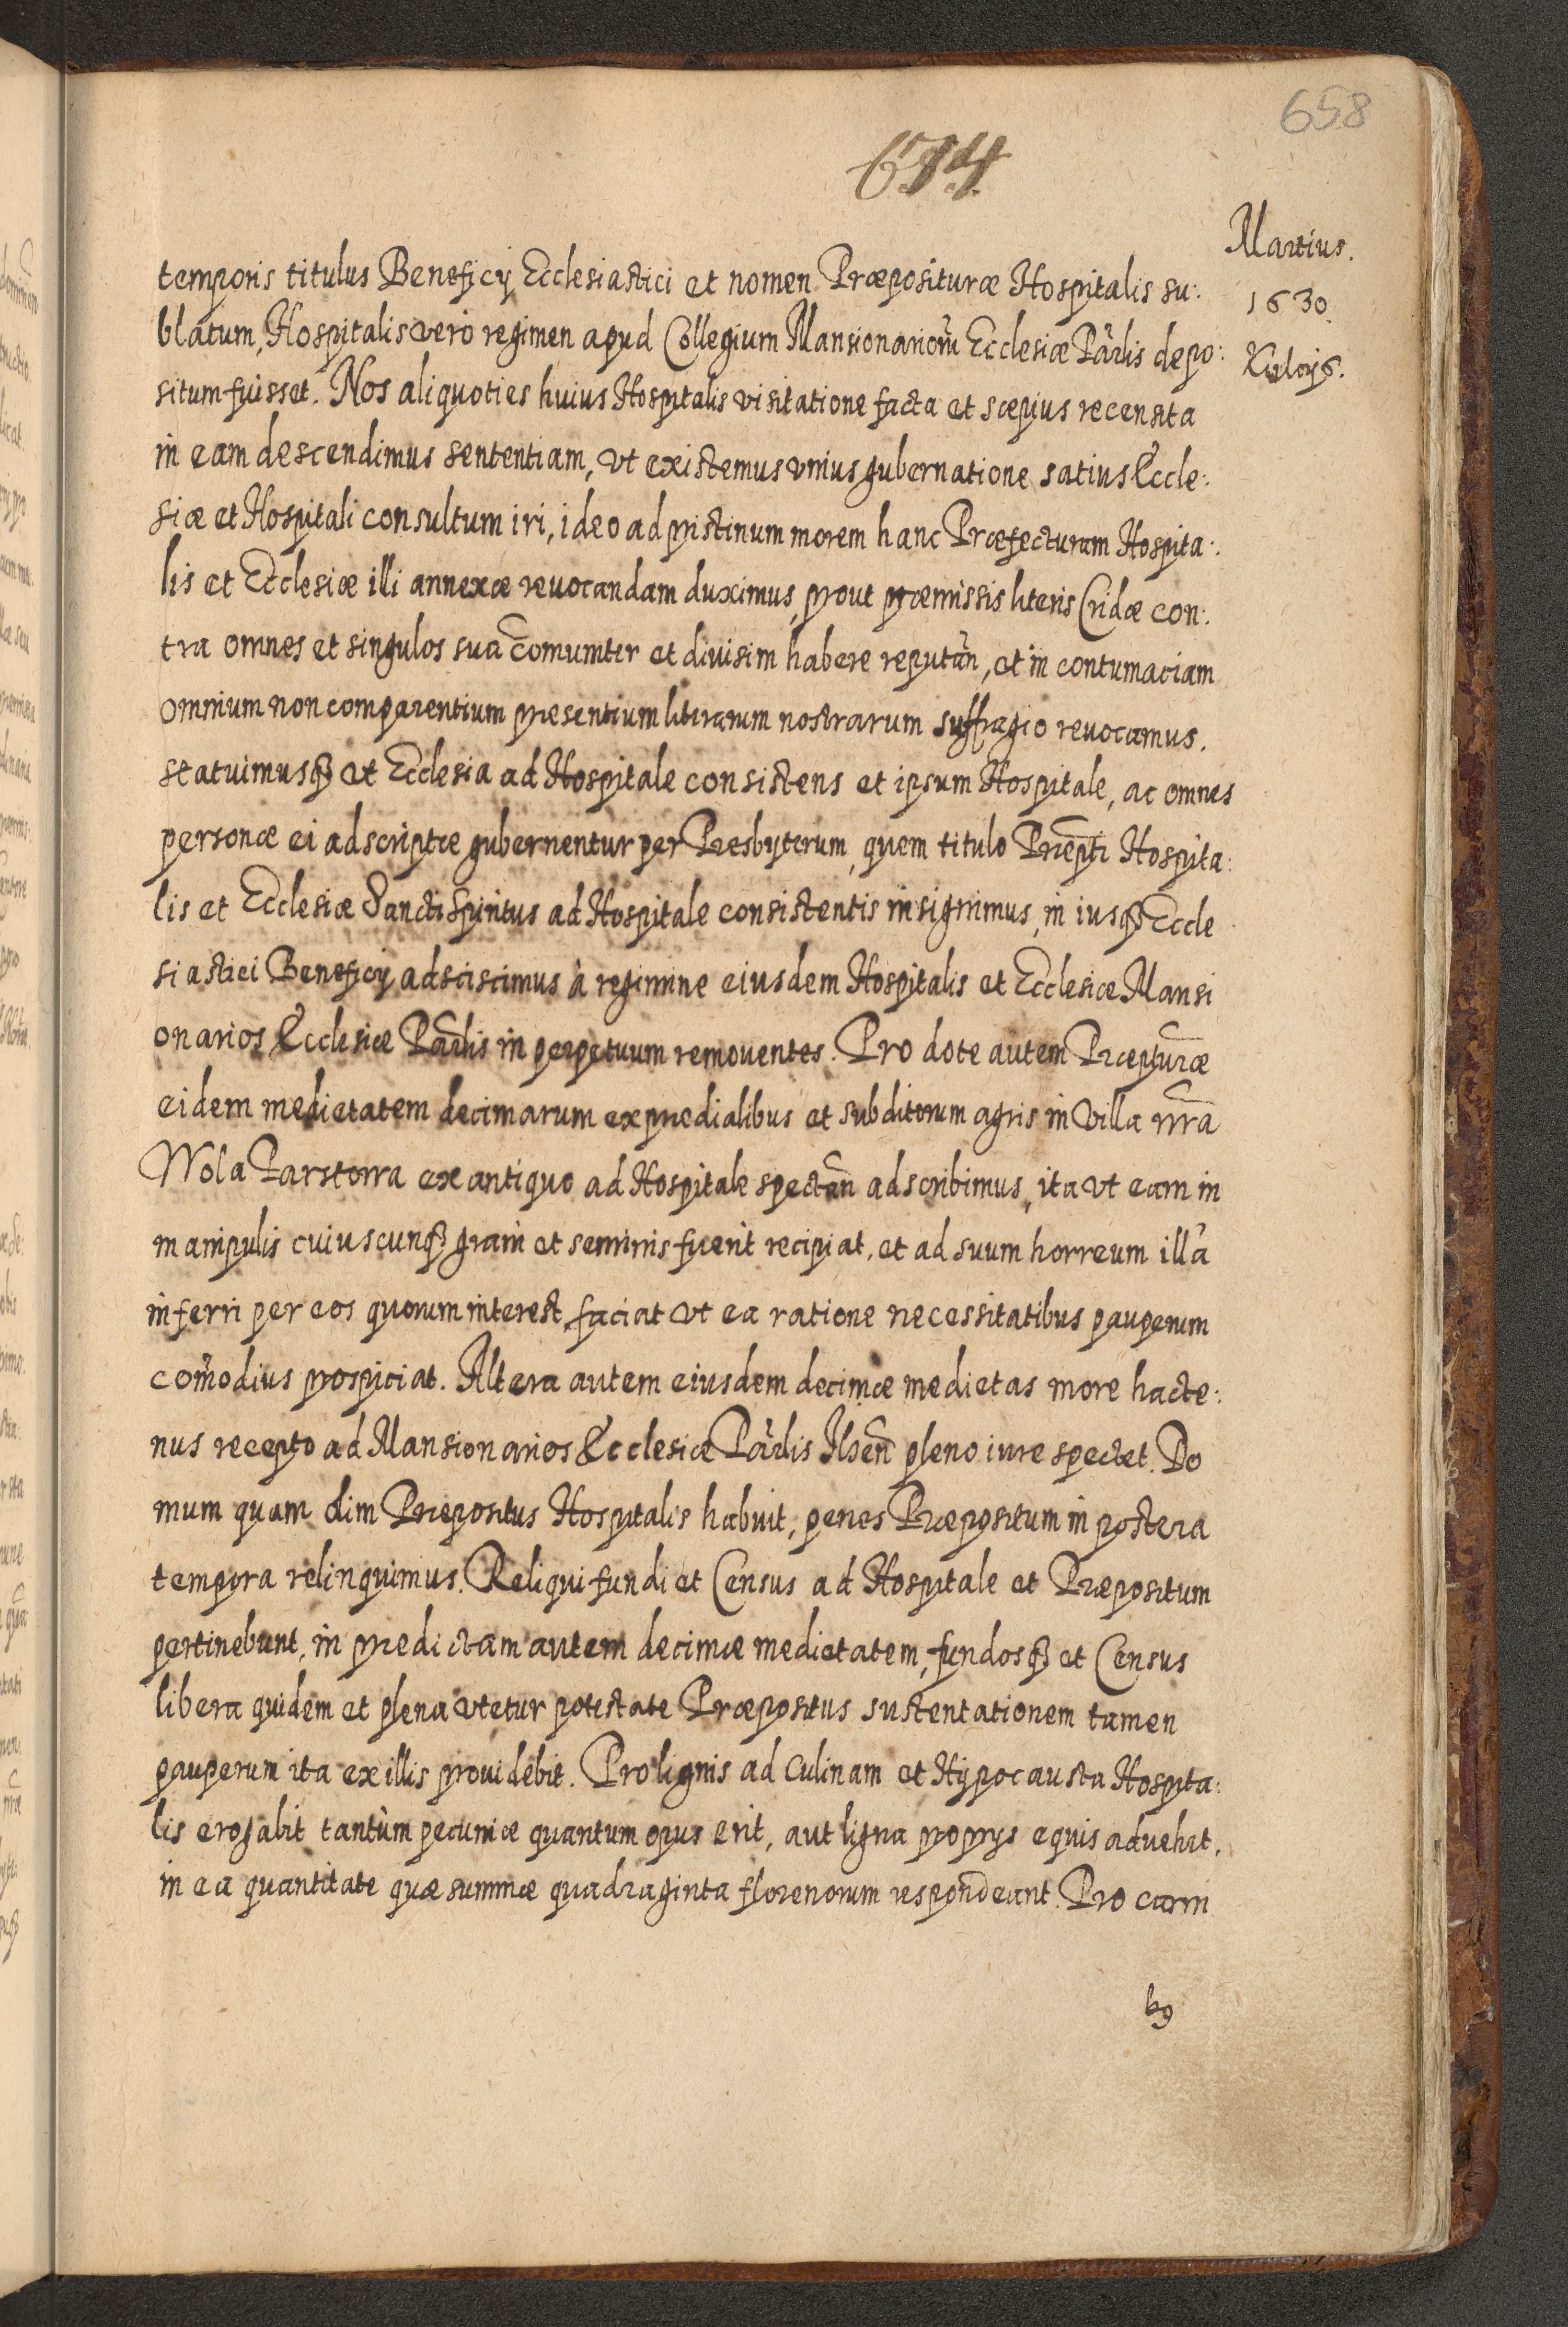 658
674
Martius.
1630.
temporis titulus Beneficij Ecclesiastici et nomen Præpositurae Hospitalis su:
blatum, Hospitalis vero regimen apud Collegium Mansionariorũ Ecclesiæ Pārlis depo:
situm fuisset. Nos aliquoties huius Hospitalis visitatione facta et sæpius recensita
in eam descendimus sententiam, vt existemus vnius gubernatione satius Eccle:
siæ et Hospitali consultum iri, ideo ad pristinum morem hanc Præfecturam Hospita:
lis et Ecclesiæ illi annexæ reuocandam duximus, prout præmissis literis Cridæ con:
tra omnes et singulos sua com̄uniter et diuisim habere reputañ, et in contumaciam
omnium non comparentium præsentium literarum nostrarum suffragio reuocamus.
statuimusq̃ et Ecclesia ad Hospitale consistens et ipsum Hospitale, ac omnes
personæ ei adscriptæ gubernentur per Præsbyterum, quem titulo Præpti Hospita:
lis et Ecclesiæ Sancti Spiritus ad Hospitale consistentis insignimus, in iusq̃ Eccle
siastici Beneficij adsciscimus à regimine eiusdem Hospitalis et Ecclesiæ Mansi
onarios Ecclesiæ Pārlis in perpetuum remouentes. Pro dote autem Præpturæ
eidem medietatem decimarum ex prædialibus et subditorum agris in Villa nr̄a
Wola ex antiquo ad Hospitale spectañ adscribimus, ita vt eam in
manipulis cuiuscunq̃ grani et seminis fuerit recipiat, et ad suum horreum illā
inferri per eos quorum interest, faciat vt ea ratione necessitatibus pauperum
com̄odius prospiciat. Altera autem eiusdem decimæ medietas more hacte:
nus recepto ad Mansionarios Ecclesiæ Pārlis Ilsen̄ pleno iure spectet. Do
mum quam olim Præpositus Hospitalis habuit, penes Præpositum in postera
tempora relinquimus. Reliqui fundi et Census ad Hospitale et Præpositum
pertinebunt, in prædictam autem decimæ medietatem, fundosq̃ et Census
libera quidem et plena vtetur potestate Præpositus sustentationem tamen
pauperum ita ex illis prouidebit. Pro lignis ad culinam et Hypocausta Hospita:
lis erogabit tantùm pecuniæ quantum opus erit, aut ligna proprijs equis aduehat,
in ea quantitate quæ summæ quadraginta florenorum respondeant. Pro carni
bꝯ